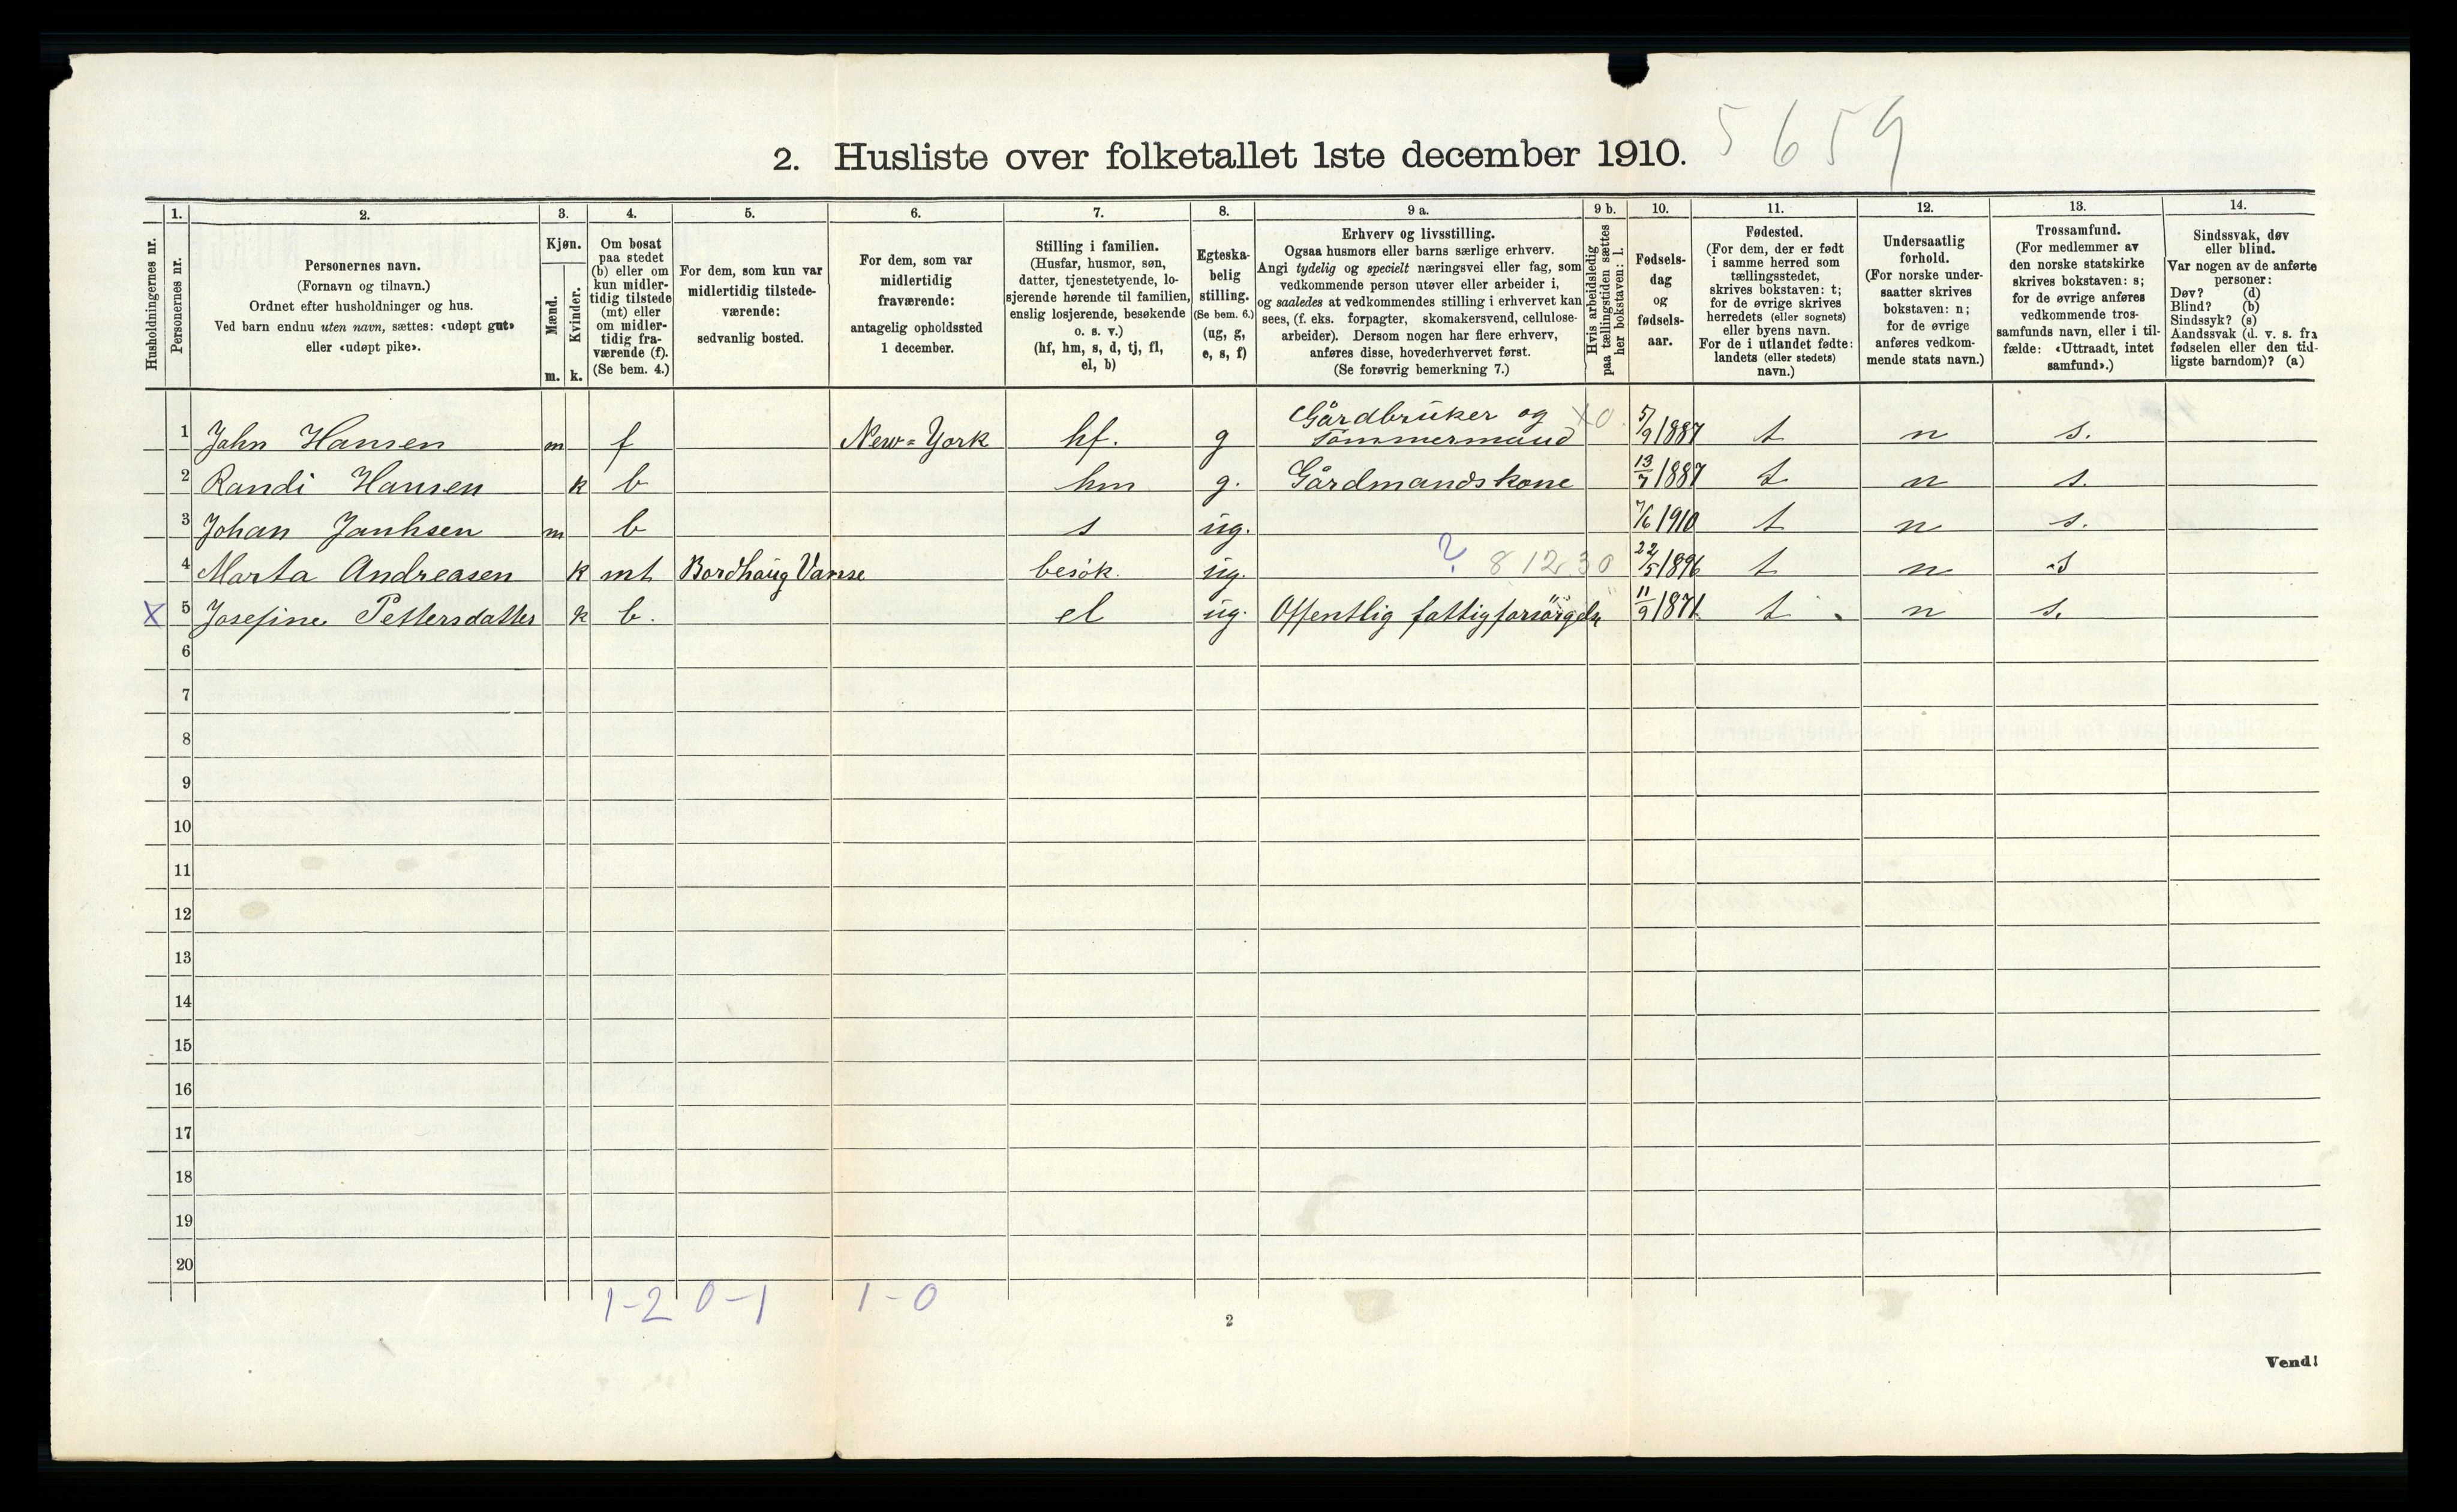 5659
2. Husliste over folketallet 1ste december 1910.
Husholdningernes nr.
1.
Personernes nr.
2.
Personernes navn.
(Fornavn og tilnavn.)
Ordnet efter husholdninger og hus.
Ved barn endnu uten navn, sættes: «udøpt gut»
eller «udøpt pike».
3.
Kjøn.
Mænd.
m.
Kvinder.
k.
4.
Om bosat
paa stedet
(b) eller om
kun midler-
tidig tilstede
(mt) eller
om midler-
tidig fra-
værende (f).
(Se bem. 4.)
5.
For dem, som kun var
midlertidig tilstede-
værende:
sedvanlig bosted.
6.
For dem, som var
midlertidig
fraværende:
antagelig opholdssted
1 december.
7.
Stilling i familien.
(Husfar, husmor, søn,
datter, tjenestetyende, lo-
sjerende hørende til familien,
enslig losjerende, besøkende
o. s. v.)
(hf, hm, s, d, tj, fl,
el, b)
8.
Egteska-
belig
stilling.
(Se bem. 6.)
(ug, g,
e, s, f)
9 a.
Erhverv og livsstilling.
Ogsaa husmors eller barns særlige erhverv.
Angi tydelig og specielt næringsvei eller fag, som
vedkommende person utøver eller arbeider i,
og saaledes at vedkommendes stilling i erhvervet kan
sees, (f. eks. forpagter, skomakersvend, cellulose-
arbeider). Dersom nogen har flere erhverv,
anføres disse, hovederhvervet først.
(Se forøvrig bemerkning 7.)
9 b.
Hvis arbeidsledig
paa tællingstiden sættes
her bokstaven: l.
10.
Fødsels-
dag
og
fødsels-
aar.
11.
Fødested.
(For dem, der er født
i samme herred som
tællingsstedet,
skrives bokstaven: t;
for de øvrige skrives
herredets (eller sognets)
eller byens navn.
For de i utlandet fødte:
landets (eller stedets)
navn.)
12.
Undersaatlig
forhold.
(For norske under-
saatter skrives
bokstaven: n;
for de øvrige
anføres vedkom-
mende stats navn.)
13.
Trossamfund.
(For medlemmer av
den norske statskirke
skrives bokstaven: s;
for de øvrige anføres
vedkommende tros-
samfunds navn, eller i til-
fælde: «Uttraadt, intet
samfund».)
14.
Sindssvak, døv
eller blind.
Var nogen av de anførte
personer:
Døv? (d)
Blind? (b)
Sindssyk? (s)
Aandssvak (d. v. s. fra
fødselen eller den tid-
ligste barndom)? (a)
1 Jahn Hansen m f New=York hf. g Gårdbruker og Tømmermand X0. 5/9 1887 t n s.
2 Randi Hansen k b hm g. Gårdmandskone 13/7 1887 t n s.
3 Johan Janhsen m b s ug. 7/6 1910 t n s.
4 Marta Andreasen k mt Bordhaug Vanse besøk. ug. ? 8 12 30 22/5 1896 t n s
X 5 Josefine Pettersdatter k b. el ug. Offentlig fattigforsørgels 11/9 1871 t n s.
6
7
8
9
10
11
12
13
14
15
16
17
18
19
20
1-2 0-1 1-0
2
Vend!